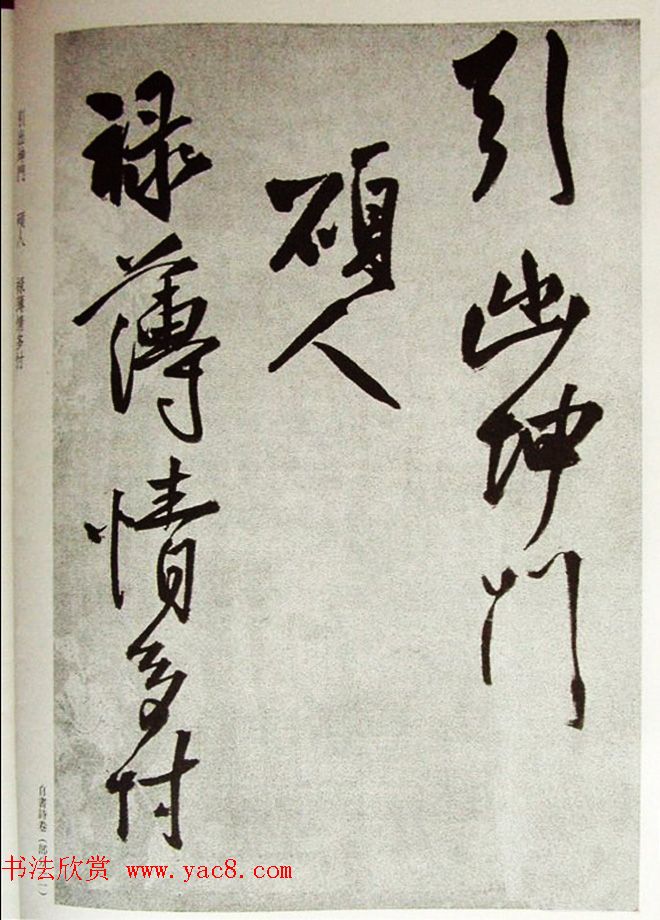 引出坤門
碩人
祿薄情多付
引出坤門 碩人 祿薄情多付
自書詩卷（部
书法欣赏 www.yac8.com